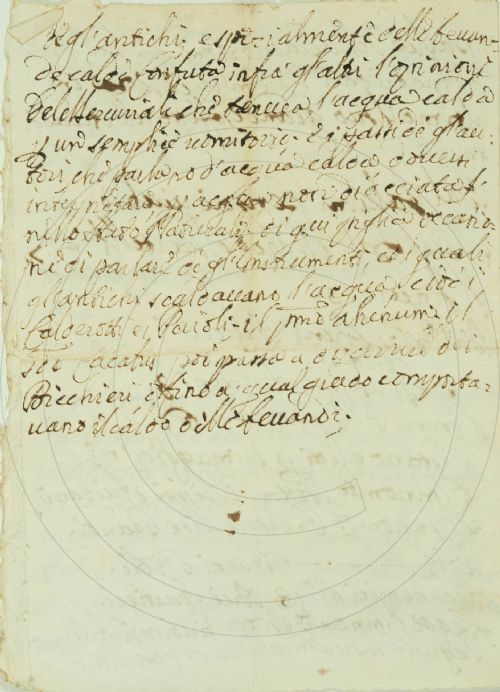 degl'antichi, e spezialmente delle bevan-
de calde confuta infra gl'altri l'opinione
del Mercuriali che teneva l'acqua calda
p un semplice vomitorio. E i passi degl'au-
tori che parlano d'acqua calda doversi
d'acqua non diacciata
nello stato naturale di qui piglia occasio-
ne di parlare degl'Instrumenti, co i quali
gl'antichi scaldavano l'acqua, cioè i
Calderotti e i Paioli. il pmo ahenum il
2do Cacabus poi passa a discorrere dei
Bicchieri e fino a qual grado comporta-
vano il caldo delle bevande.